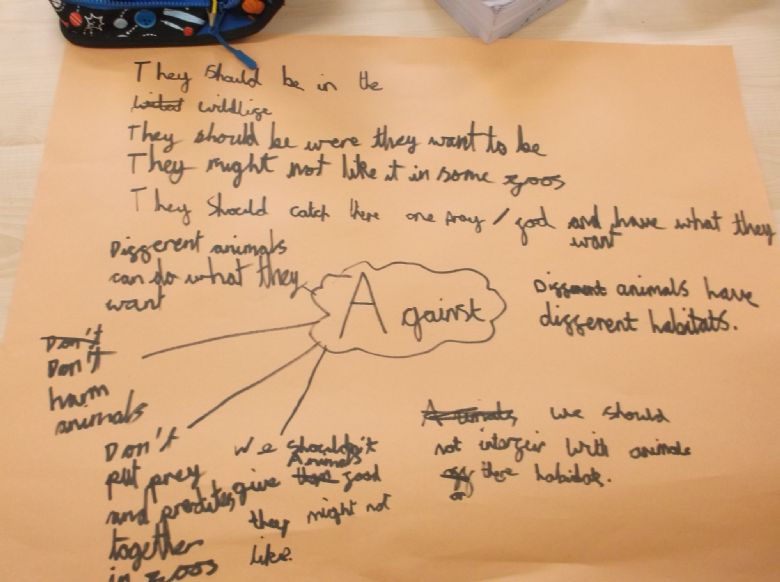 They should be in the
wildlige
They should be were they want to be
They might not like it in some zoos
They should catch there one pray / good and have what they
want
Diggerent animals
can do what they
want
Against
Diggerent animals have
diggerent habitats.
Don't
Don't
harm
animals
Don't
put prey
and predites
together
in zoos
we shouldn't
Animals
give there good
they might not
like.
Animals we should
not intergeir with animals
or there habitats.